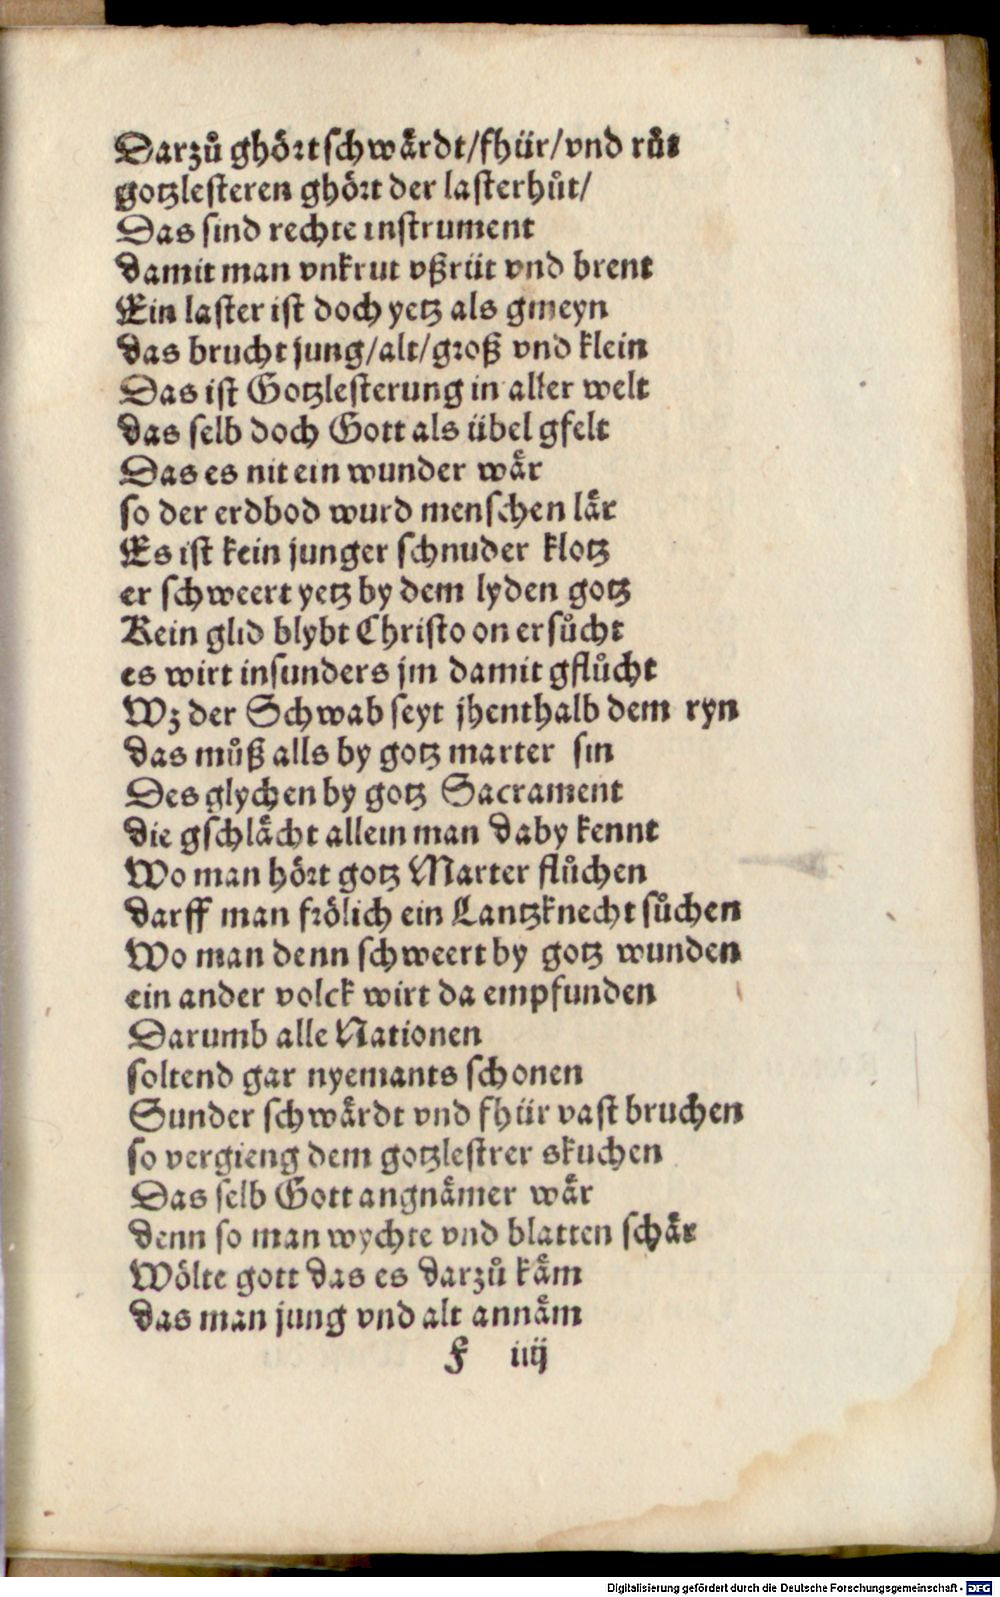 Darzů ghört schwärdt/fhür/vnd růt
gotzlesteren ghört der lasterhůt/
Das sind rechte instrument
damit man vnkrut vßrüt vnd brent
Ein laster ist doch yetz als gmeyn
das brucht jung/alt/groß vnd klein
Das ist Gotzlesterung in aller welt
das selb doch Gott als übel gfelt
Das es nit ein wunder wår
so der erdbod wurd menschen lår
Es ist kein junger schnuder klotz
er schweert yetz by dem lyden gotz
Kein glid blybt Christo on ersůcht
es wirt insunders jm damit gflůcht
Wz der Schwab seyt jhenthalb dem ryn
das můß alls by gotz marter sin
Des glychen by gotz Sacrament
die gschlåcht allein man daby kennt
Wo man hört gotz Marter flůchen
darff man frölich ein Lantzknecht sůchen
Wo man denn schweert by gotz wunden
ein ander volck wirt da empfunden
Darumb alle Nationen
soltend gar nyemants schonen
Sunder schwårdt vnd fhür vast bruchen
so vergieng dem gotzlestrer skuchen
Das selb Gott angnåmer wår
denn so man wychte vnd blatten schår
Wölte gott das es darzů kåm
das man jung vnd alt annåm
F iiij
Digitalisierung gefördert durch die Deutsche Forschungsgemeinschaft - DFG